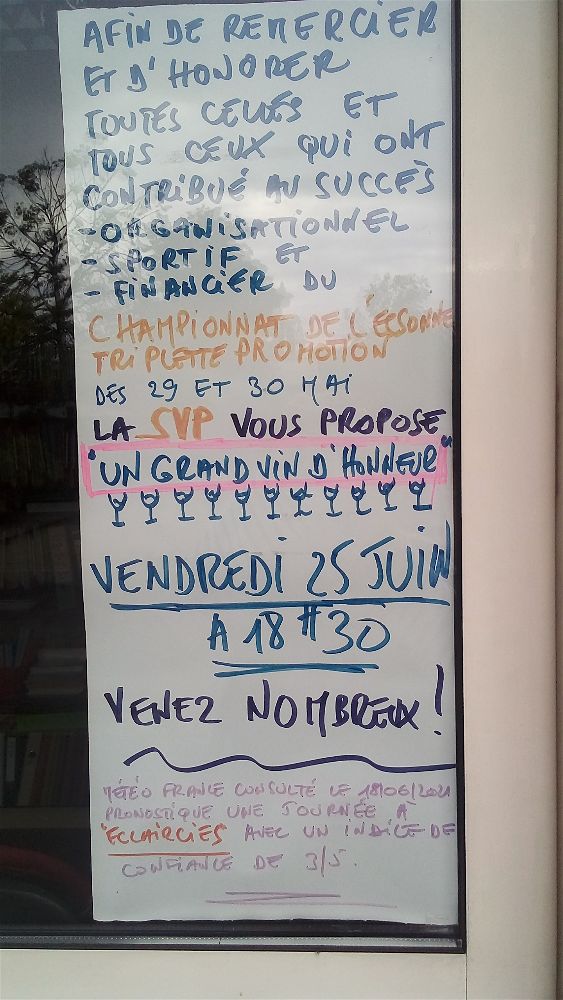 AFIN DE REMERCIER
ET D'HONORER
TOUTES CELLES ET
TOUS CEUX QUI ONT
CONTRIBUÉ AU SUCCÈS
- ORGANISATIONNEL
- SPORTIF ET
- FINANCIER DU
CHAMPIONNAT DE L'ESSONNE
TRIPLETTE PROMOTION
DES 29 ET 30 MAI
LA SVP VOUS PROPOSE
"UN GRAND VIN D'HONNEUR"
VENDREDI 25 JUIN
A 18H30
VENEZ NOMBREUX!
MÉTÉO FRANCE CONSULTÉ LE 18/06/2021
PRONOSTIQUE UNE JOURNÉE À
"ECLAIRCIES" AVEC UN INDICE DE
CONFIANCE DE 3/5.